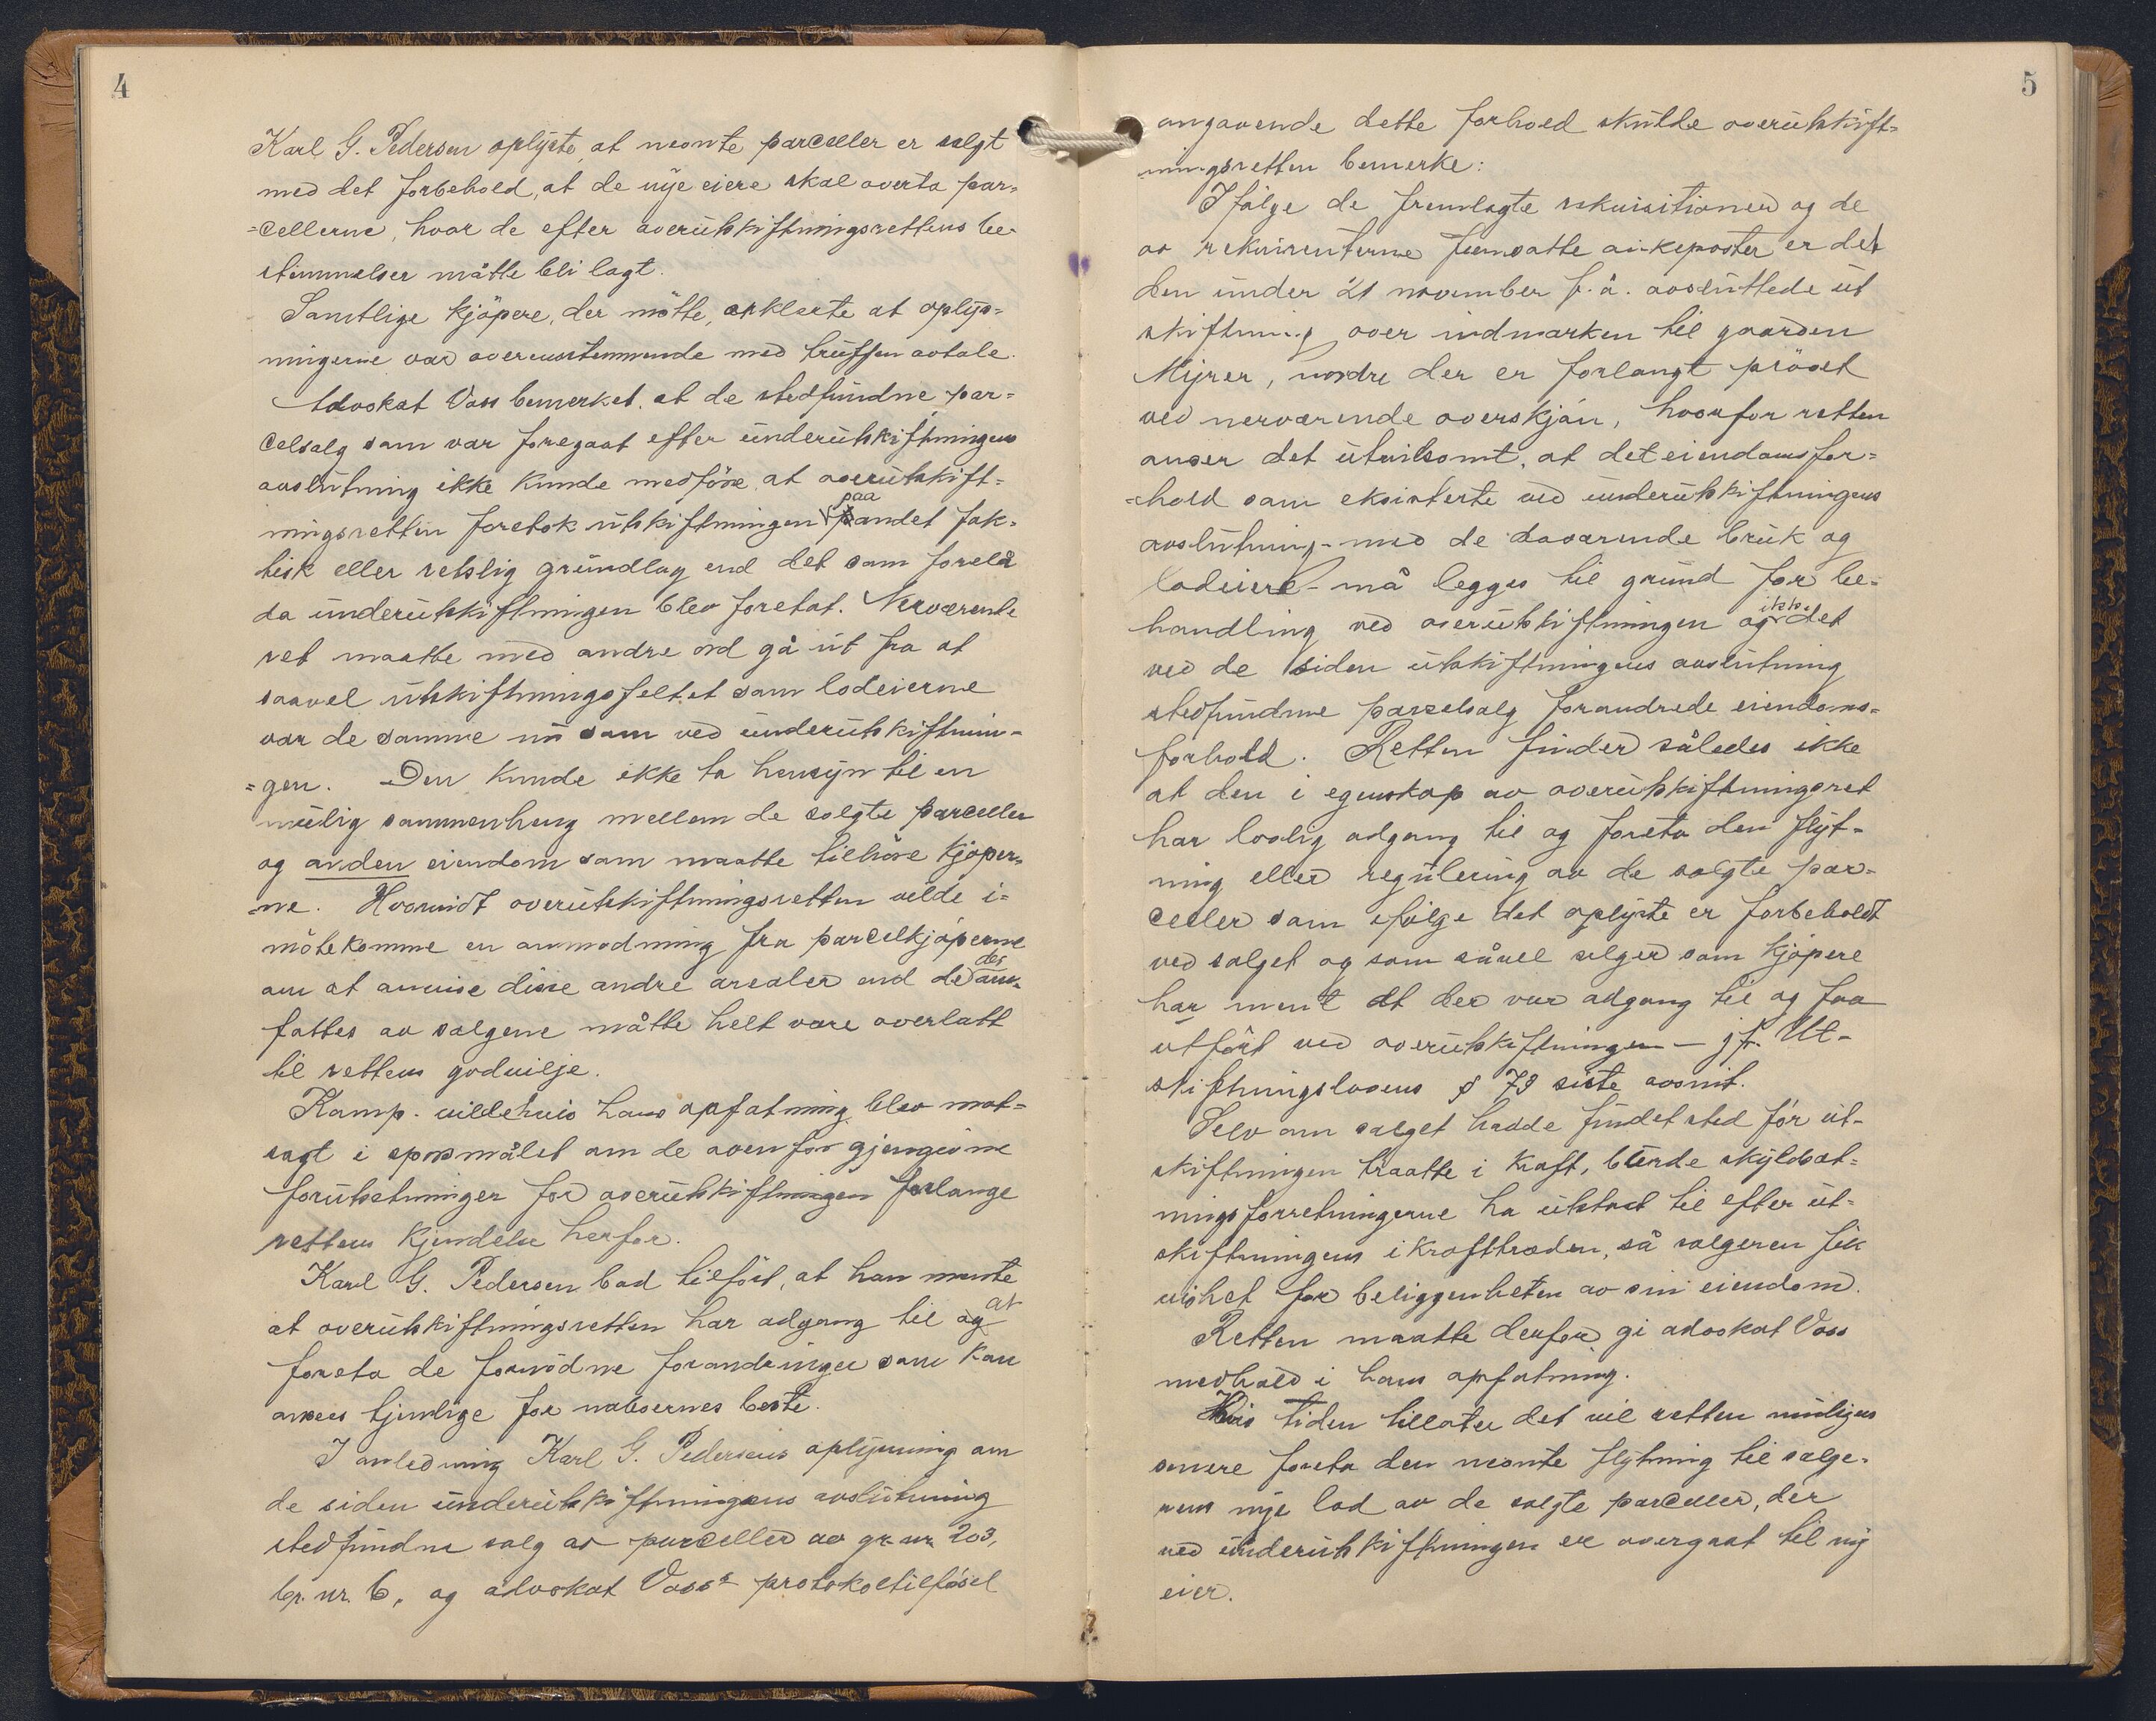 4
Karl G. Pedersen oplyste, at nevnte parceller er solgt
med det forbehold, at de nye eiere skal overta par=
=cellerne, hvor de efter overutskiftningsrettens be-
stemmelser måtte bli lagt.
Samtlige kjöpere, der mötte, erklærte at oplys=
ningerne var overensstemmende med truffen avtale.
Advokat Voss bemerket, at de stedfundne par=
celsalg som var foregaat efter underutskiftningens
avslutning ikke kunde medföre at overutskift=
ningsretten foretok utskiftningen paa andet fak=
tisk eller retslig grundlag end det som forelå
da underutskiftningen blev foretat. Nerværende
ret maatte med andre ord gå ut fra at
saavel utskiftningsfeltet som lodeierne
var de samme nu som ved underutskiftnin-
=gen. Den kunde ikke ta hensyn til en
mulig sammenheng mellem de solgte parceller
og anden eiendom som maatte tilhöre kjöper=
=ne. Hvorvidt overutskiftningsretten vilde i=
mötekomme en anmodning fra parcelkjöperne
om at anvise disse andre arealer end de der om=
fattes av salgene måtte helt være overlatt
til rettens godvilje.
Kamp. vilde hvis hans opfatning blev mot=
sagt i spörsmålet om de ovenfor gjengivne
forutsetninger for overutskiftningen forlange
rettens kjendelse herfor.
Karl G. Pedersen bad tilfört, at han mente
at overutskiftningsretten har adgang til og at
foreta de fornödne forandringer som kan
ansees tjenlige for naboernes beste.
I anledning Karl G. Pedersens oplysning om
de siden underutskiftningens avslutning
stedfundne salg av parceller av gr. nr. 203,
br. nr. 6, og advokat Voss's protokoltilförsel
5
angaaende dette forhold skulde overutskift=
ningsretten bemerke:
Ifölge de fremlagte rekvisitioner og de
av rekvirenterne fremsatte ankeposter er det
den under 21 november f. å. avsluttede ut
skiftning over indmarken til gaarden
Myrer, nordre der er forlangt prövet
ved nerværende overskjön, hvorfor retten
anser det utvilsomt, at det eiendomsfor=
=hold som eksisterte ved underutskiftningens
avslutning - med de daværende bruk og
lodeiere - må legges til grund for be=
handling ved overutskiftningen og ikke det
ved de siden utskiftningens avslutning
stedfundne parselsalg forandrede eiendoms=
forhold. Retten finder således ikke
at den i egenskap av overutskiftningsret
har lovlig adgang til og foreta den flyt=
ning eller regulering av de solgte par=
celler som ifölge det oplyste er forbeholdt
ved salget og som såvel selger som kjöpere
har ment at der var adgang til og faa
utfört ved overutskiftningen - jf. Ut-
skiftningslovens § 73 siste avsnit.
Selv om salget hadde fundet sted för ut-
skiftningen traatte i kraft, burde skyldsæt=
ningsforretningerne ha utstaat til efter ut=
skiftningens ikrafttræden, så selgeren fik
vishet for beliggenheten av sin eiendom.
Retten maatte derfor gi advokat Voss
medhold i hans opfatning.
Hvis tiden tillater det vil retten muligens
senere foreta den nevnte flytning til selge-
rens nye lod av de solgte parceller, der
ved underutskiftningen er overgaat til ny
eier.